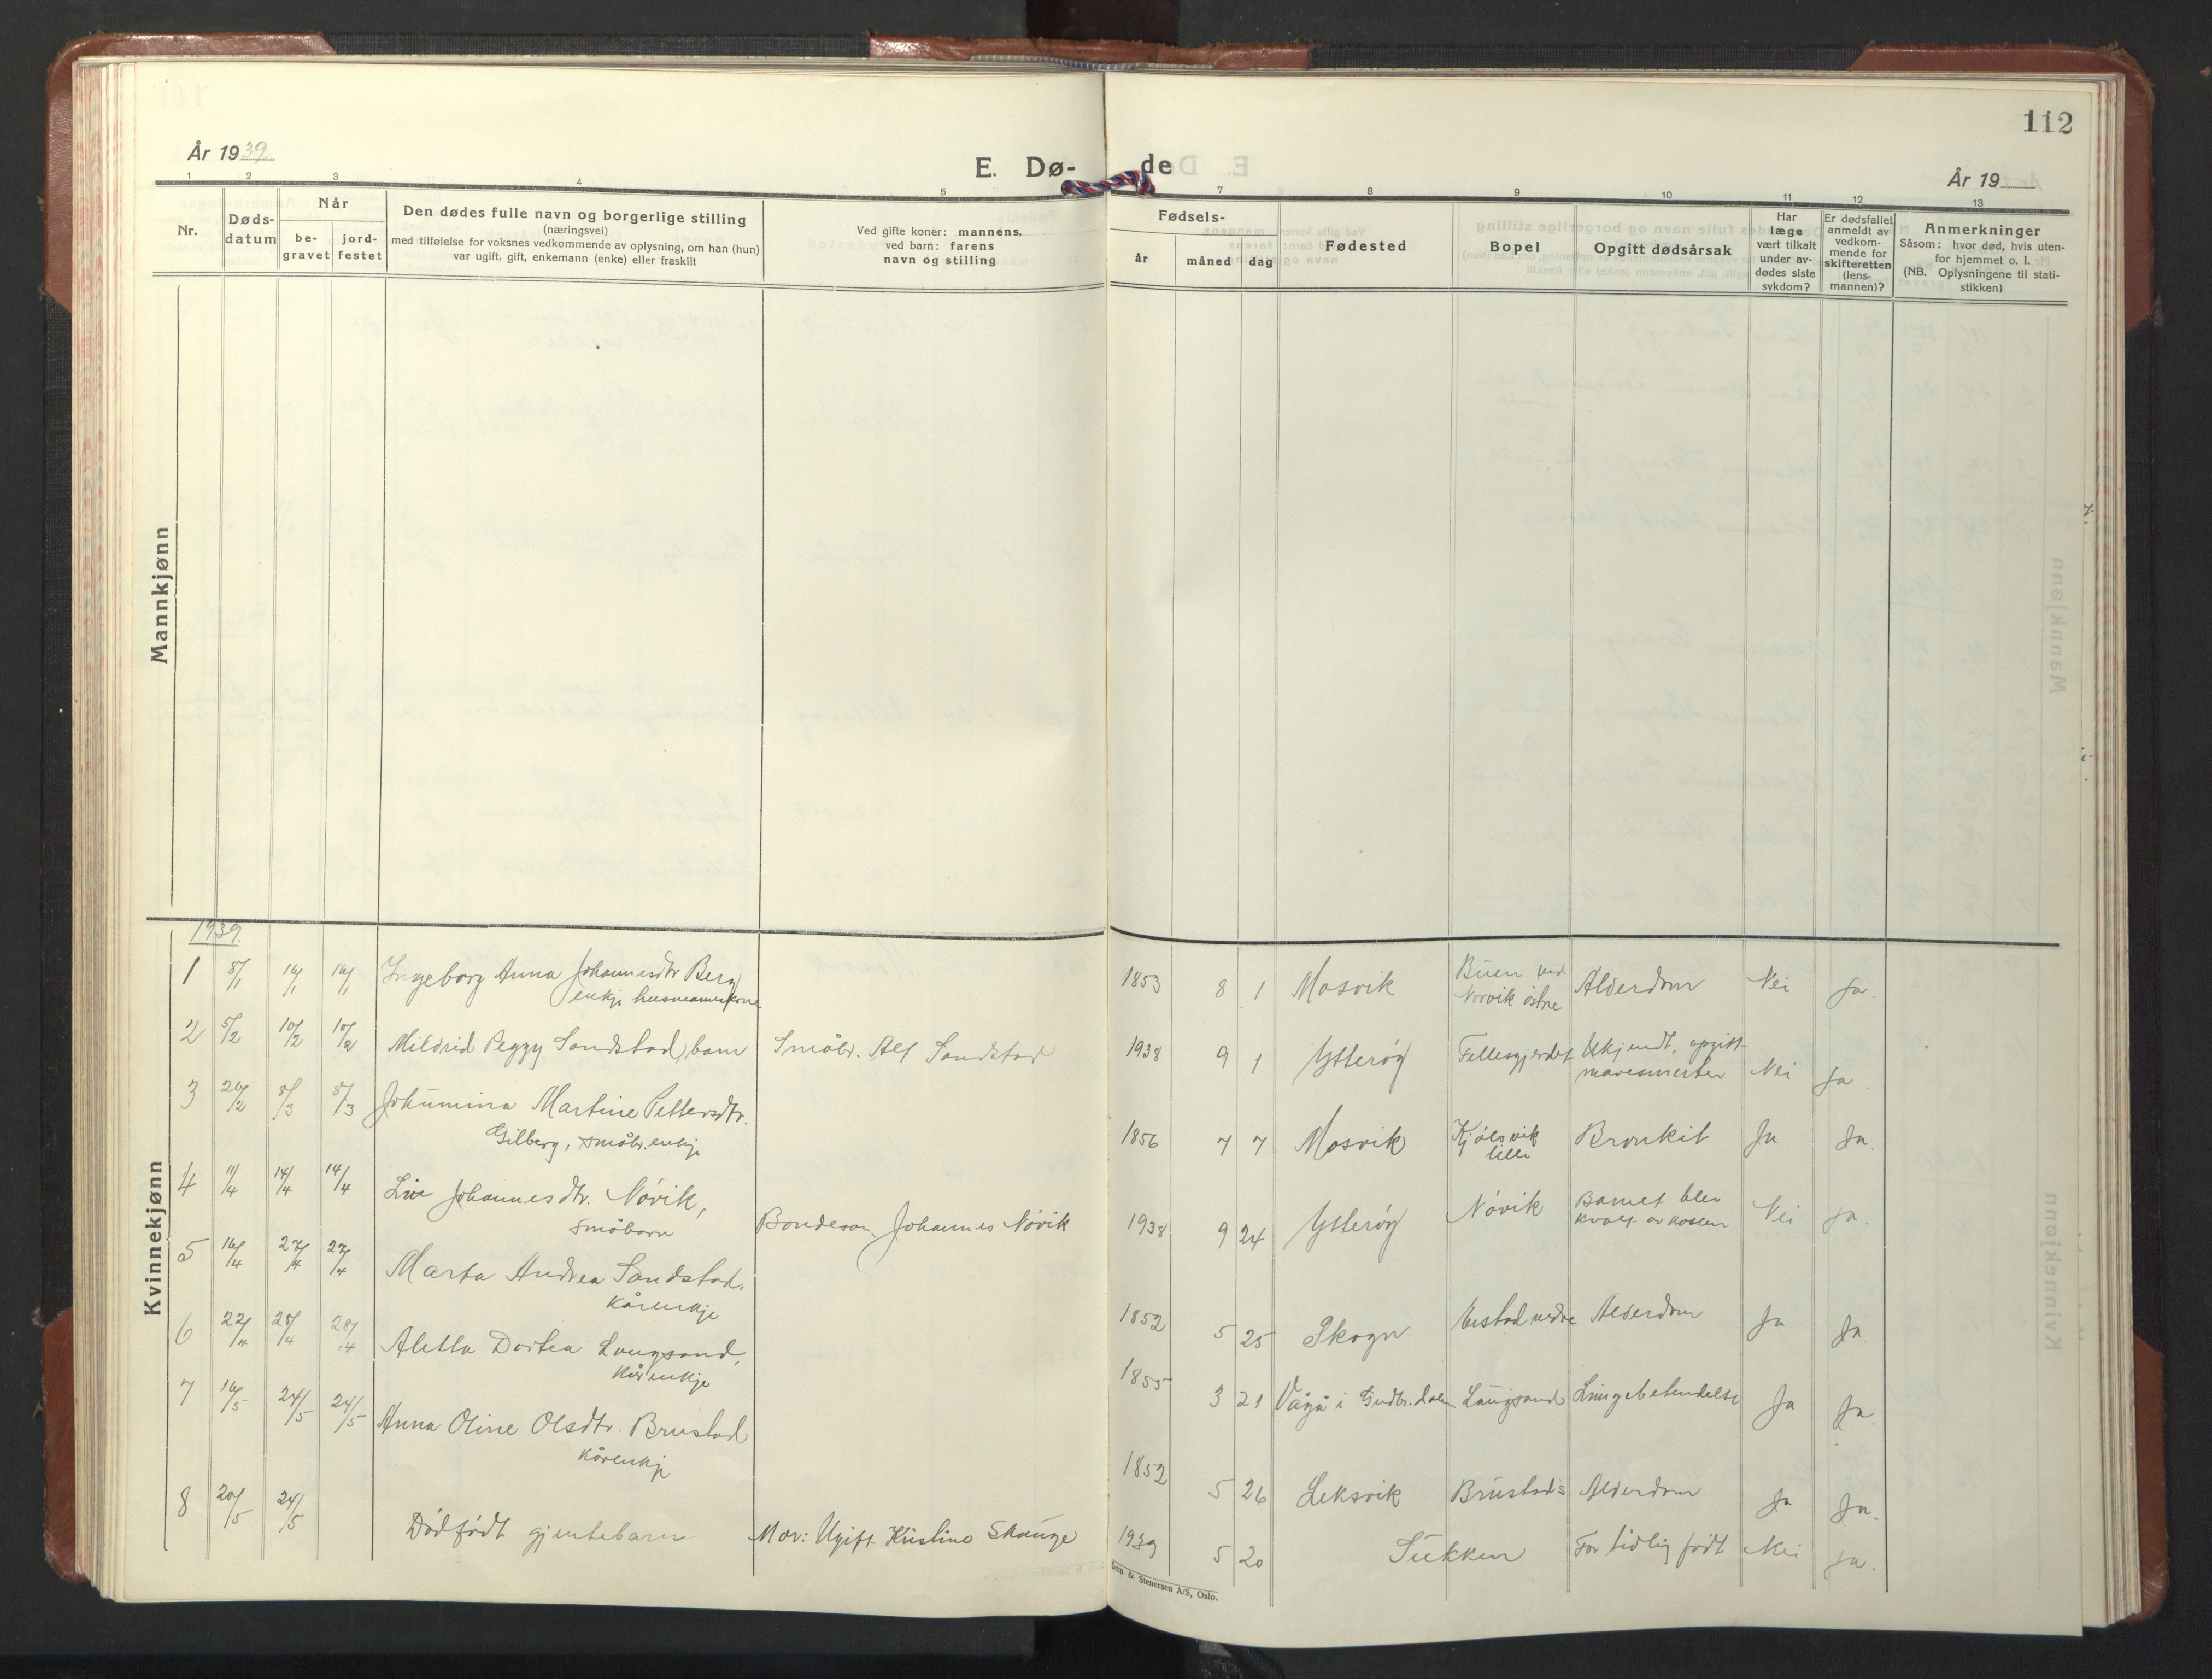 112
År 1939.
E. Dø-
de
År 19
1 2 3 4 5
7 8 9 10 11 12 13
Nr.
Døds-
datum
Når
be-
gravet
jord-
festet
Den dødes fulle navn og borgerlige stilling
(næringsvei)
med tilføielse for voksnes vedkommende av oplysning, om han (hun)
var ugift, gift, enkemann (enke) eller fraskilt
Ved gifte koner: mannens,
ved barn: farens
navn og stilling
Fødsels-
år
måned
dag
Fødested
Bopel
Opgitt dødsårsak
Har
læge
vært tilkalt
under av-
dødes siste
sykdom?
Er dødsfallet
anmeldt av
vedkom-
mende for
skifteretten
(lens-
mannen)?
Anmerkninger
Såsom: hvor død, hvis uten-
for hjemmet o. l.
(NB. Oplysningene til stati-
stikken)
Mannkjønn
Kvinnekjønn
1939.
1 8/1 14/1 14/1 Ingeborg Anna Johannesdtr Berg
enkje husmannskone
1853 8 1 Mosvik Buen ved
Norvik østre
Alderdom Nei Ja.
2 5/2 10/2 10/2 Mildrid Peggy Sandstad, barn Småbr. Alf Sandstad
1938 9 1 Ytterøy Fellesgjerdet Ukjendt, opgitt
mavesmerter Nei Ja
3 26/2 8/3 8/3 Johumina Martine Pettersdtr.
Gilberg, småbr.enkje
1856 7 7 Mosvik Kjølsvik
lille
Bronkit Ja Ja.
4 11/4 14/4 14/4 Liv Johannesdtr. Nøvik,
småbarn
Bondeson Johannes Nøvik
1938 9 24 Ytterøy Nøvik Barnet blev
kvalt av hosten Nei Ja.
5 16/4 27/4 27/4 Marta Andrea Sandstad.
Kårenkje
1852 5 25 Skogn nedre Alderdom Ja Ja.
6 22/4 28/4 28/4 Aletta Dortea Langsand,
Kårenkje
1855 3 21 Vågå i Gudbr.dalen Langsand Lungebetendelse Ja Ja.
7 16/5 24/5 24/5 Anna Oline Olsdtr. Brustad
Kårenkje
1852 5 26 Leksvik Brustad Alderdom Ja Ja.
8 20/5 24/5 Dødfødt gjentebarn Mor: Ugift Kristine Skauge
1939 5 20 Sukken For tidlig født Nei Ja.
Sem & Stenersen A/S, Oslo.